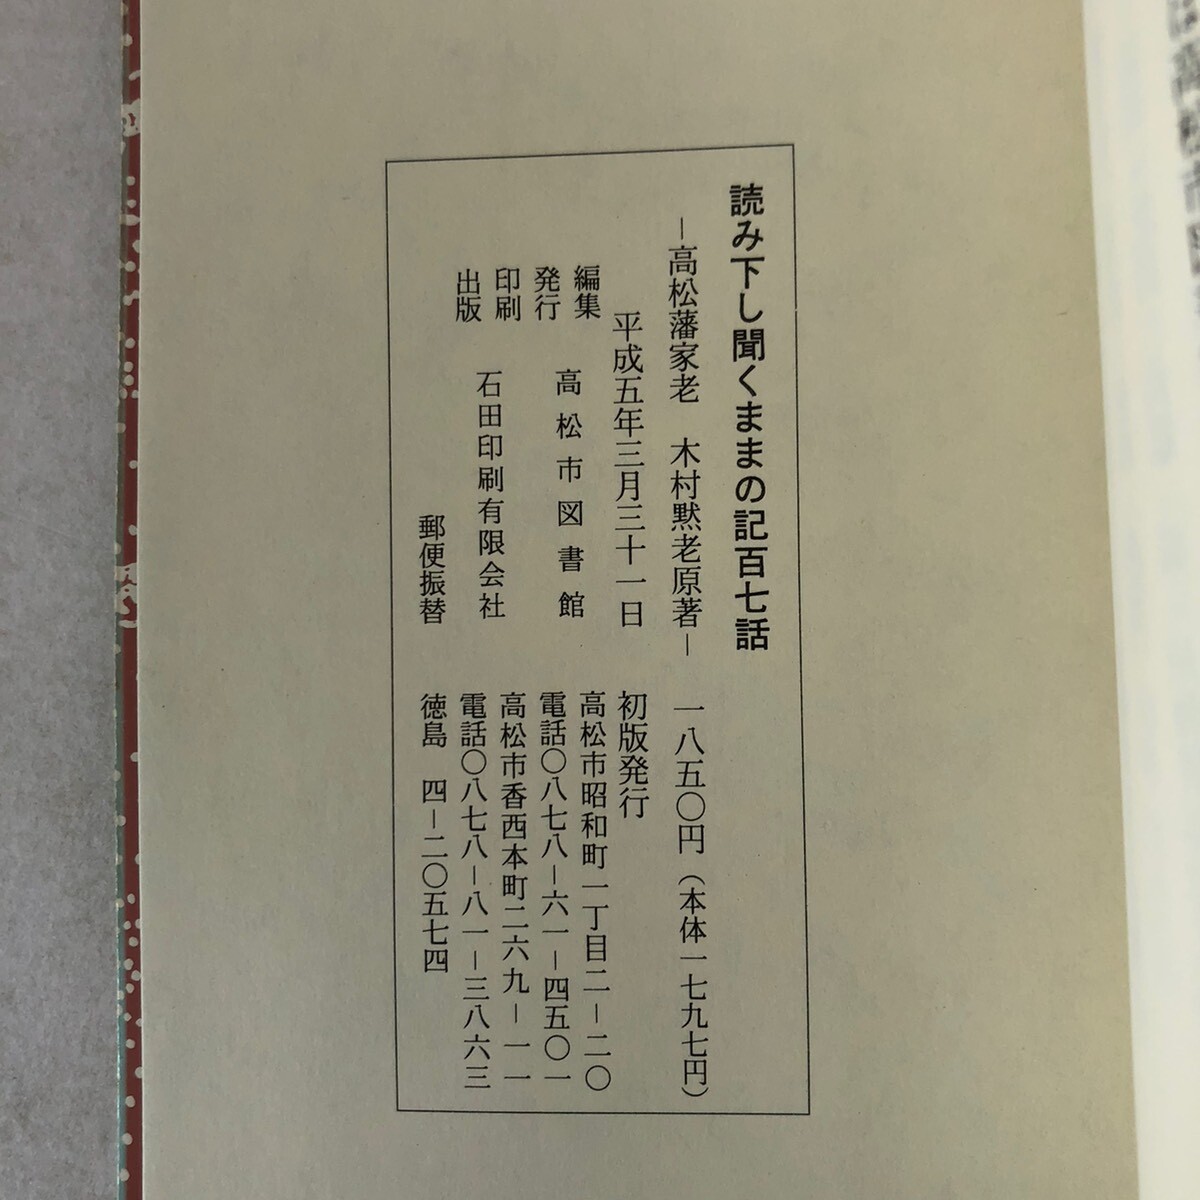 読み下し聞くままの記百七話
―高松藩家老 木村黙老原著― 一八五〇円（本体一七九七円）
平成五年三月三十一日 初版発行
編集
発行 高松市図書館
高松市昭和町一丁目二―二〇
電話〇八七八―六一―四五〇一
印刷
出版 石田印刷有限会社
高松市香西本町二六九―一一
電話〇八七八―八一―三八六三
郵便振替 徳島 四―二〇五七四